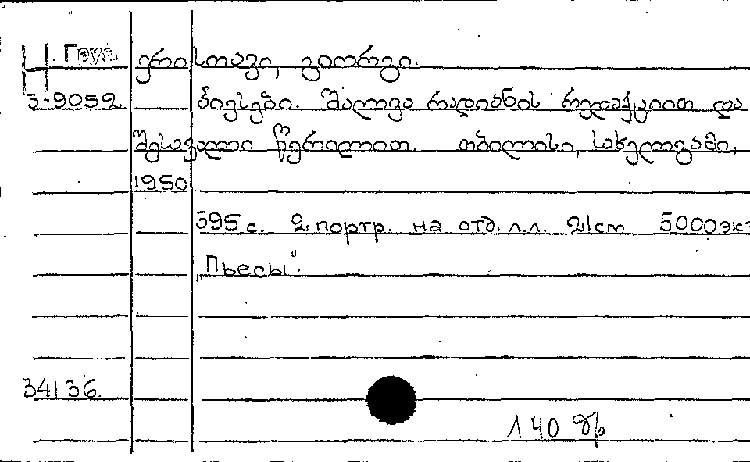 Н. Груз.
ერისთავი, გიორგი.
3-9052
პიესები. შალვა რადიანის რედაქციით და
შესავალი წერილით. თბილისი, სახელგამი,
1950
395 с. 2 портр. на отд. л.л. 21 cm 5000 экз
„Пьесы".
34136.
140 გр